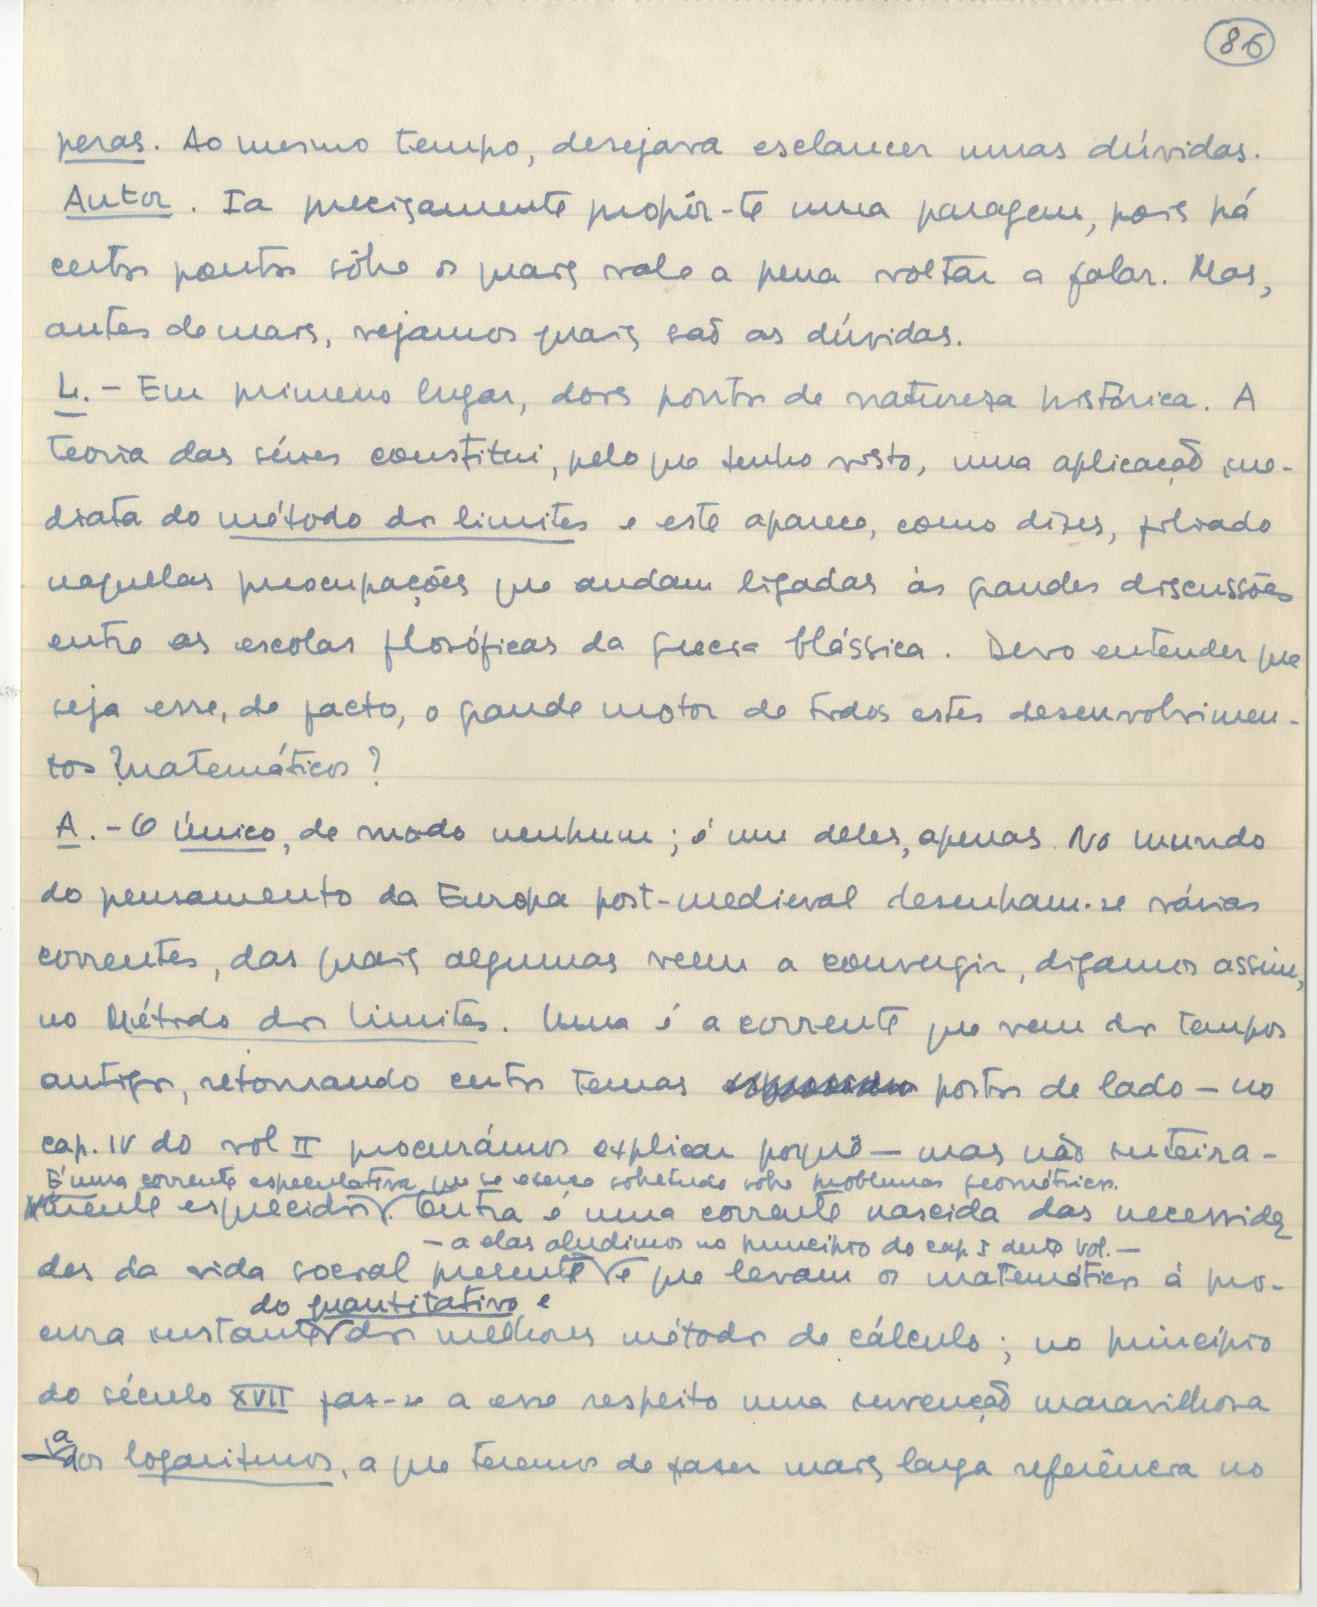 86
peras. Ao mesmo tempo, desejava esclarecer umas dúvidas.
Autor. Ia precisamente propôr-te uma paragem, pois há
certos pontos sôbre os quais vale a pena voltar a falar. Mas,
antes de mais, vejamos quais são as dúvidas.
L. - Em primeiro lugar, dois pontos de natureza histórica. A
teoria das séries constitui, pelo que tenho visto, uma aplicação ime-
diata do método dos limites e este aparece, como dizes, filiado
naquelas preocupações que andam ligadas às grandes discussões
entre as escolas filosóficas da Grécia Clássica. Devo entender que
seja esse, de facto, o grande motor de todos estes desenvolvimen-
tos matemáticos?
A. - O único, de modo nenhum; é um deles, apenas. No mundo
do pensamento da Europa post-medieval desenham-se várias
correntes, das quais algumas veem a convergir, digamos assim,
no Método dos limites. Uma é a corrente que vem dos tempos
antigos, retomando certos temas postos de lado - no
cap. IV do vol II procurámos explicar porquê - mas não inteira-
É uma corrente especulativa que se exerce sobretudo sôbre problemas geométricos.
mente esquecidos. Outra é uma corrente nascida das necessida
- a elas aludimos no princípio do cap. I deste vol. -
des da vida social presente e que levam os matemáticos à pro-
do quantitativo e
cura instante dos melhores métodos de cálculo; no princípio
do século XVII faz-se a esse respeito uma invenção maravilhosa
- a dos logaritmos, a que teremos de fazer mais larga referência no